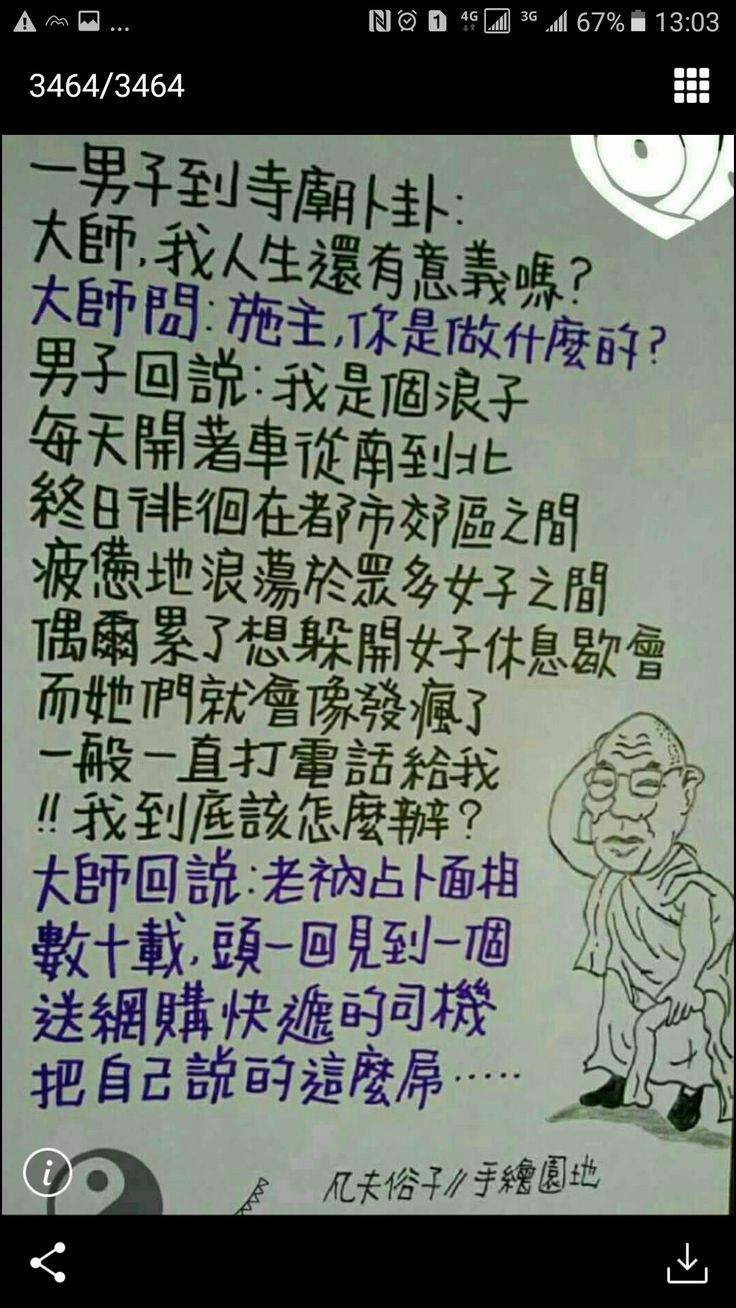 4G 3G 67% 13:03
3464/3464
一男子到寺廟卜卦:
大師,我人生還有意義嗎?
大師問:施主,你是做什麼的?
男子回說:我是個浪子
每天開著車從南到北
終日徘徊在都市郊區之間
疲憊地浪蕩於眾多女子之間
偶爾累了想躲開女子休息歇會
而她們就會像發瘋了
一般一直打電話給我
!!我到底該怎麼辦?
大師回說:老衲占卜面相
數十載,頭一回見到一個
送網購快遞的司機
把自己說的這麼屌.....
凡夫俗子//手繪園地